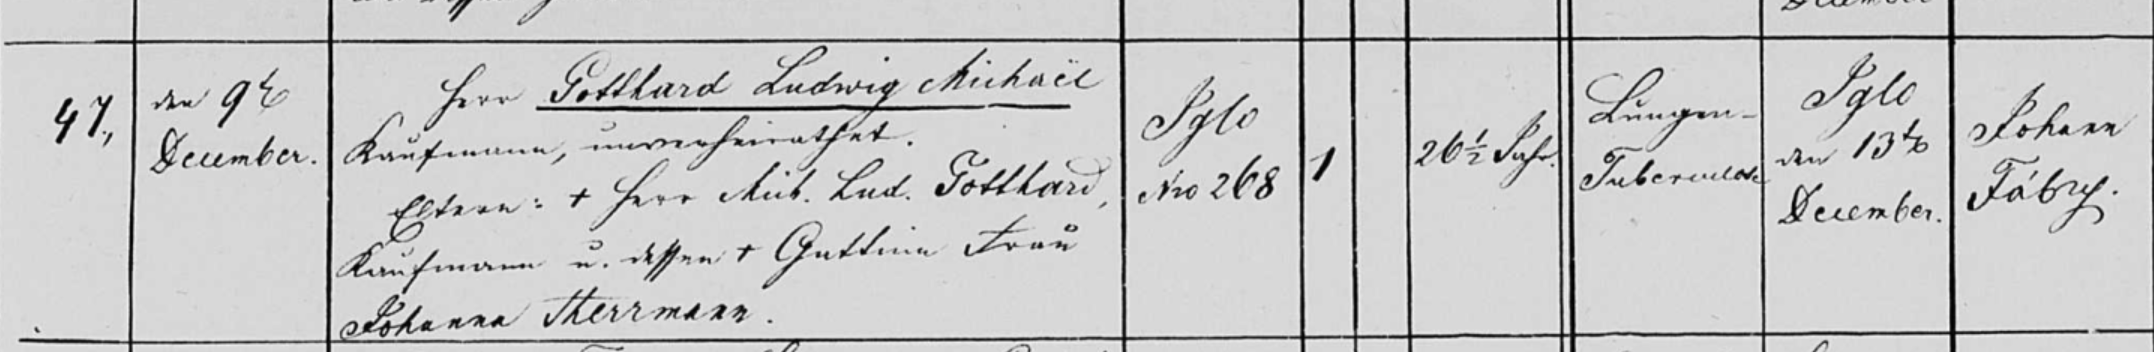 47.,
den 9t
December.
Herr Gotthard Ludwig Michaël
Kaufmann, unverheirathet.
Eltern: + Herr Mich. Lud. Gotthard,
Kaufmann u. dessen + Gattinn Frau
Johanna Therrmann.
Iglo
Nro 268
1
26 1/2 Jahr.
Lungen-
Tuberculose
Iglo
den 13t
December.
Johann
Fábry.